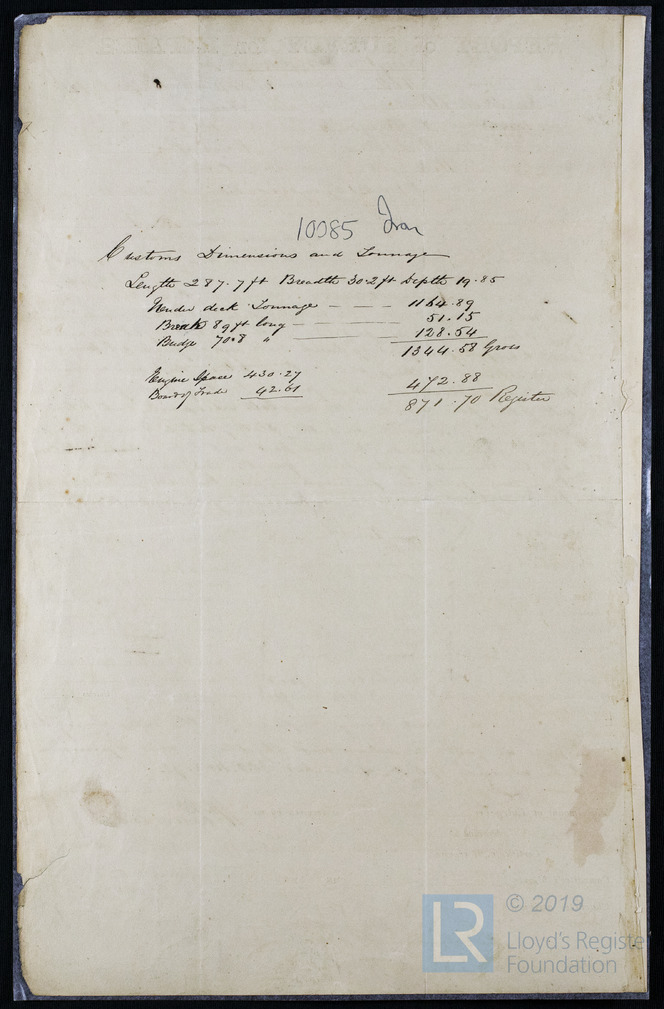 10085 Iron
Customs Dimensions and Tonnage
Length 287.7 ft Breadth 30.2 ft Depth 19.85
Under deck Tonnage — — — 1164.89
Break 89 ft long — — — 51.15
Bridge 70.8 " — — — 128.54
1344.58 Gross
Engine Space 430.27
472.88
Board of Trade 42.61
871.70 Register
LR
© 2019
Lloyd's Registe
Foundation